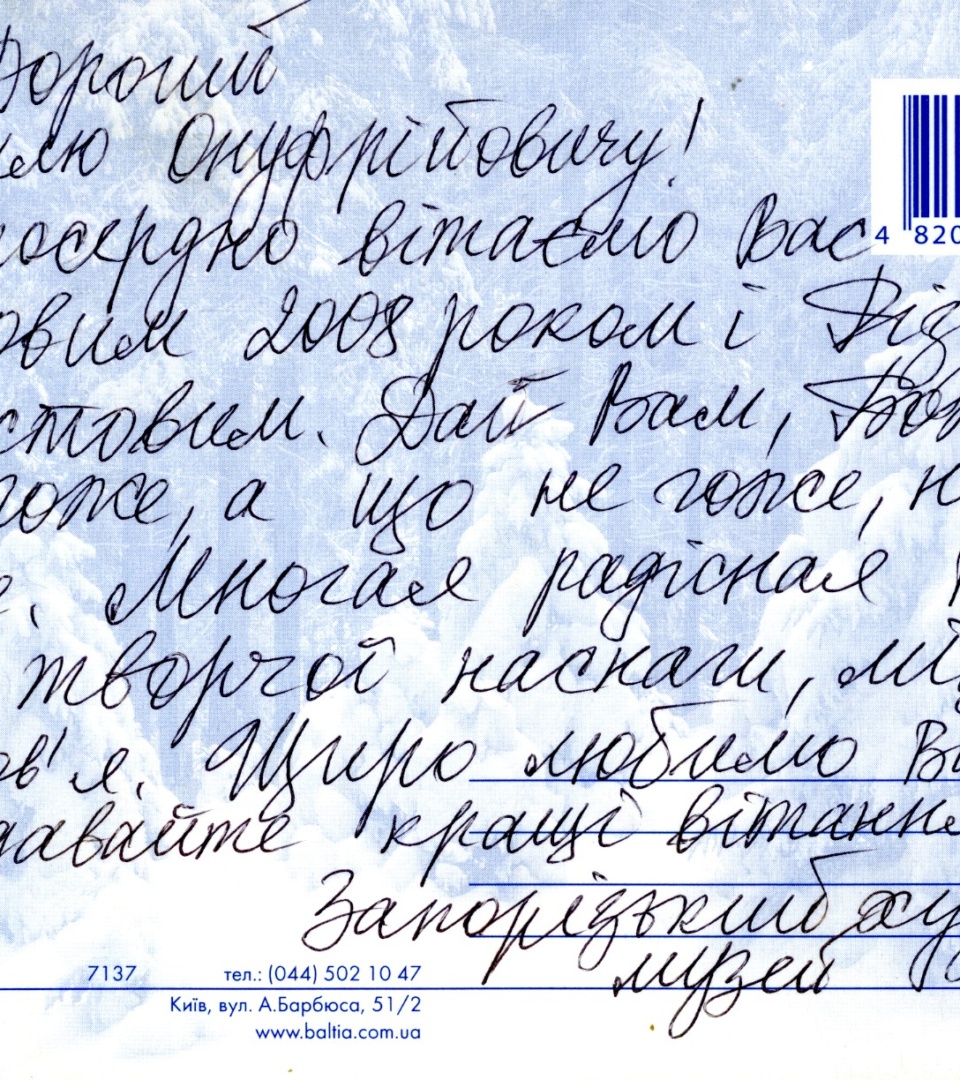 Дорогий
лю Онуфрійовичу!
осердно вітаємо Вас
овим 2008 роком і Різ
стовим. Дай Вам, Бож
гоже, а що не гоже, н
е. Многая радісная
творчої наснаги, міц
ов'я. Щиро любимо Ва
давайте кращі вітанн
Запорізький ху
музей
4 820
7137 тел.: (044) 502 10 47
Київ, вул. А.Барбюса, 51/2
www.baltia.com.ua